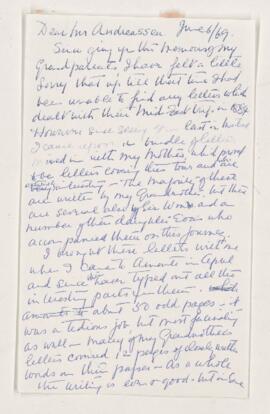 Dear Mr Andreassen June 6/69.
Since giving up the Memoirs of my
Grandparents I have felt a little
sorry that up till that time I had
been unable to find any letters which
dealt with their Mid East trip in
However since seeing you last in
I came upon a bundle of letters
mixed in with my Mother's which proved
to be letters covering this tour and are
interesting — The majority of these
are written by my Grandmother but there
are several by and a
number of their daughter who
accompanied them on this journey.
I brought these letters with me
when I came to in April
and since have typed out all the
interesting parts of them.
about 50 odd pages — it
was a tedious job but most fascinating
as well — Many of my Grandmother's
letters covered 12 pages of closely written
words on thin paper — As a whole
the writing is good — but in some